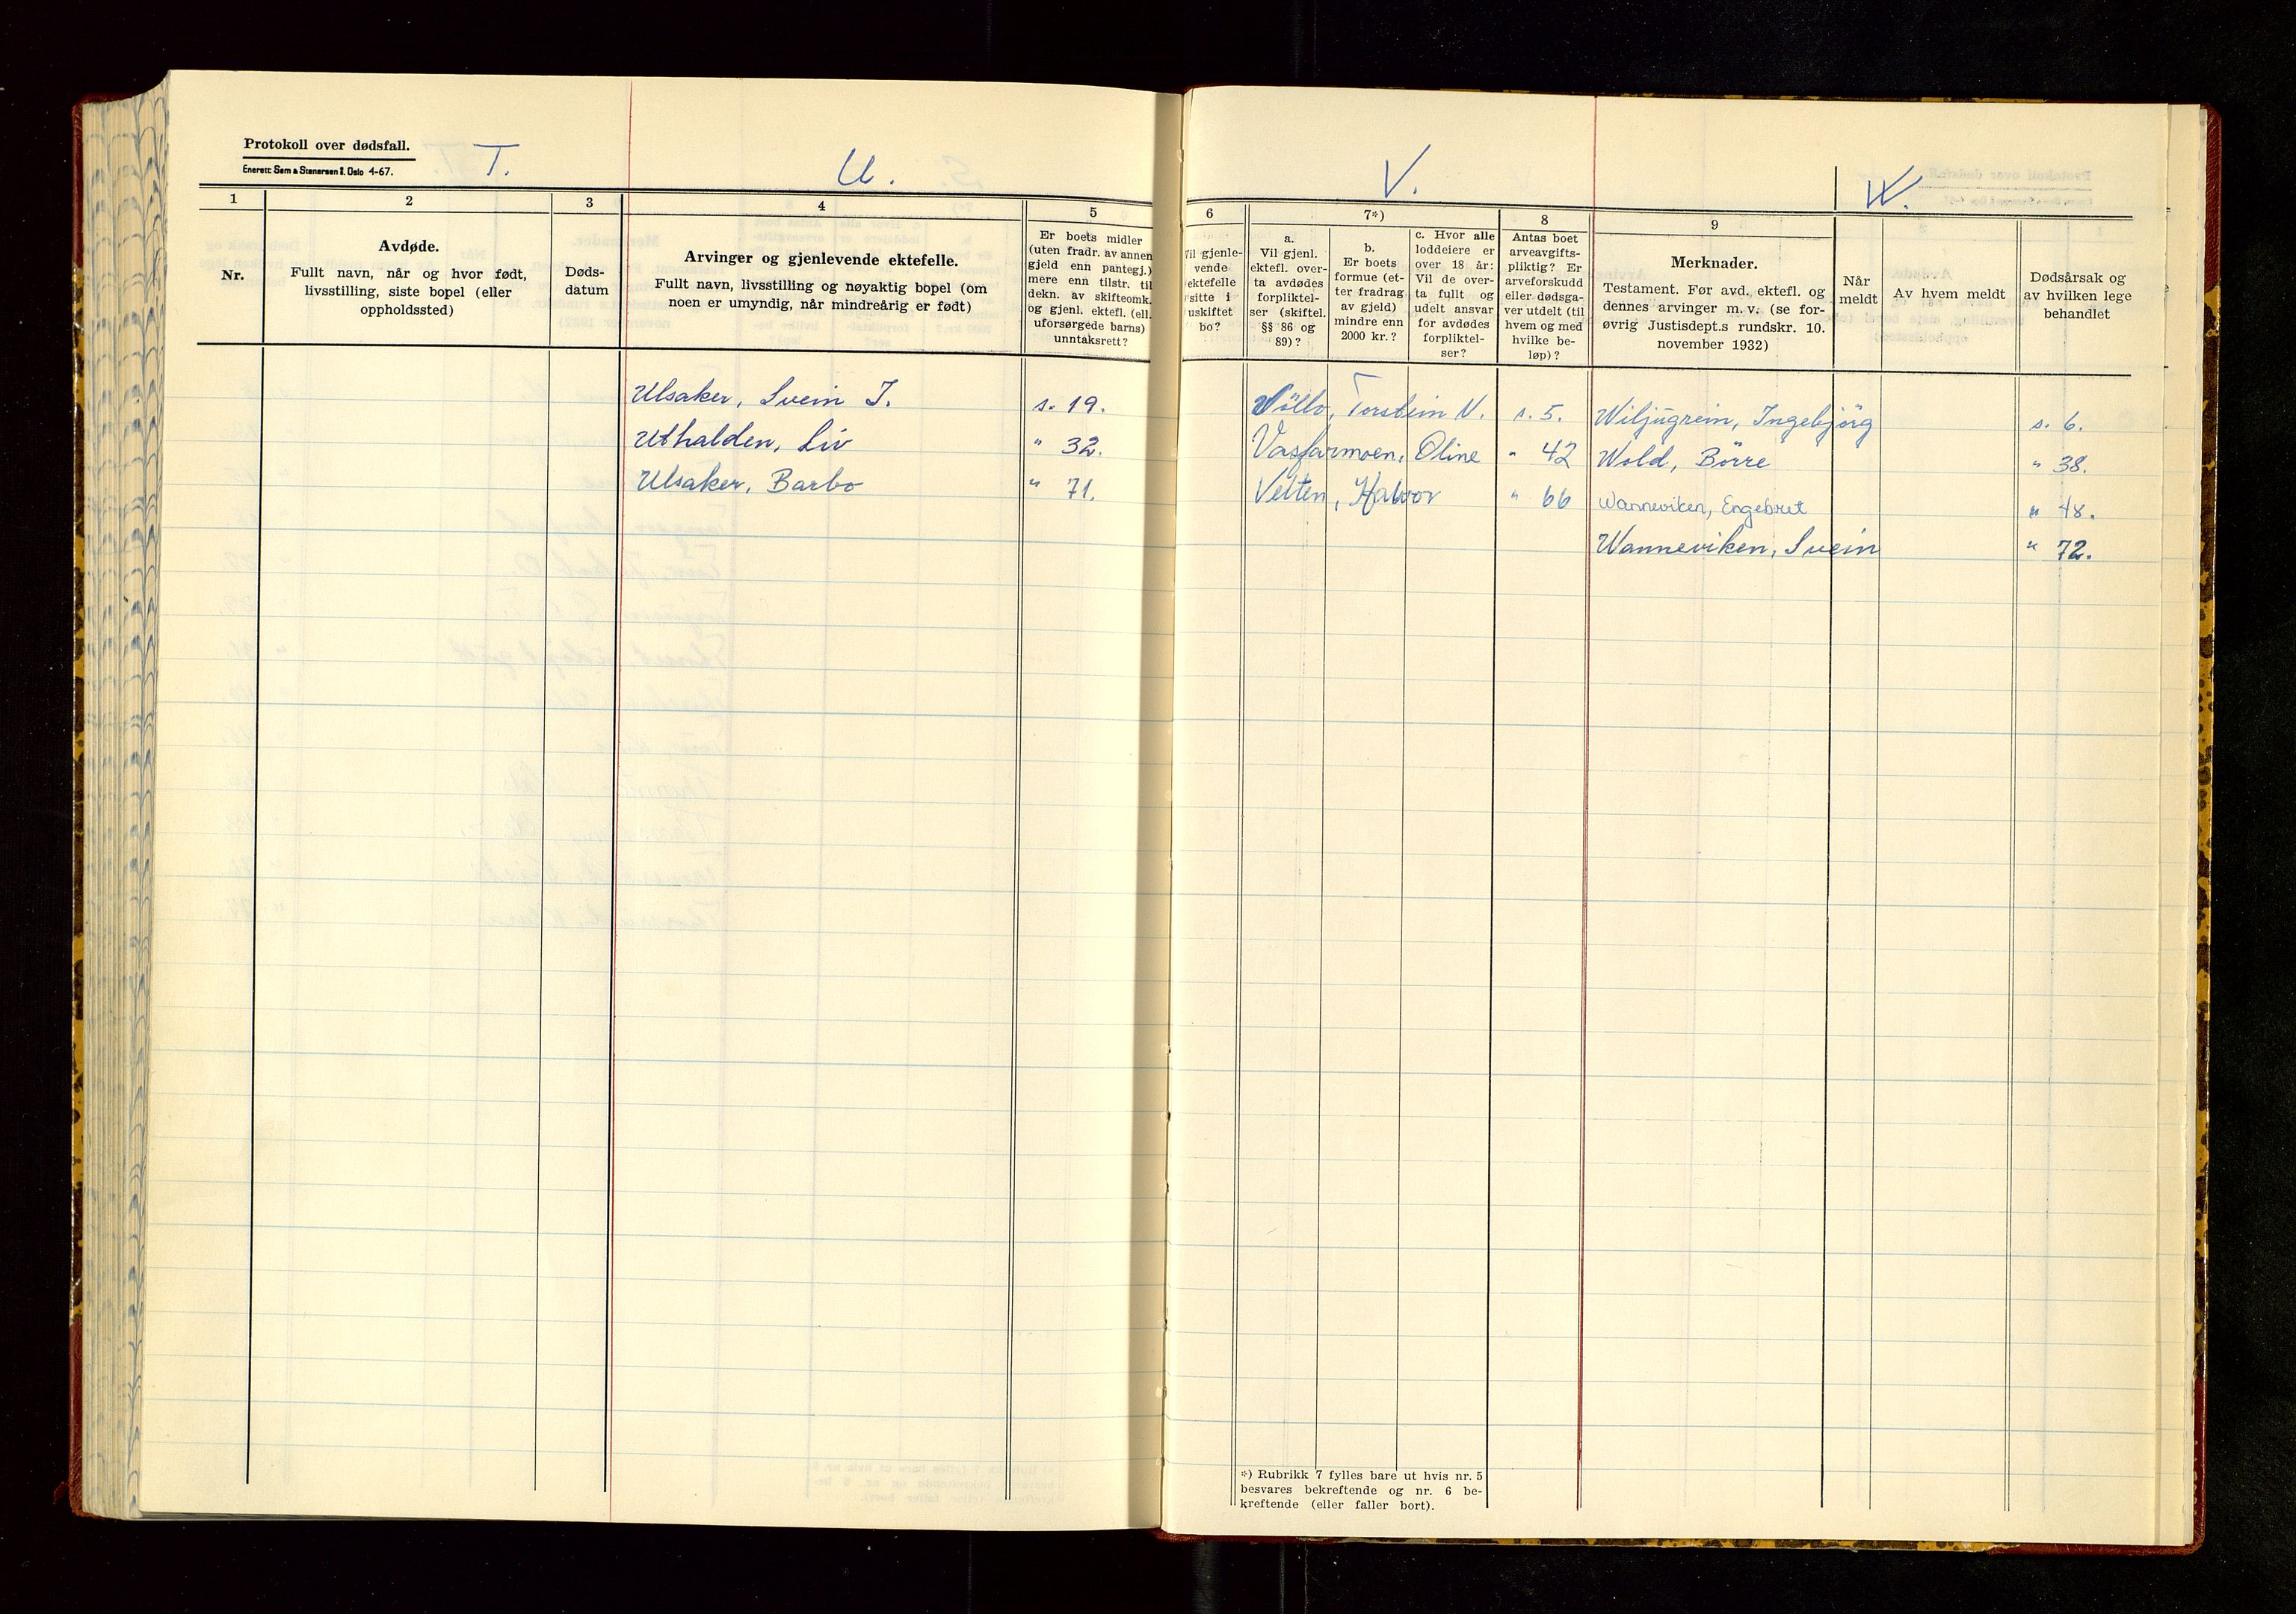 Protokoll over dødsfall.
Enerett: Sem & Stenersen A/S, Oslo 4-67.
T.
U.
1
2
3
4
5
Nr.
Avdøde.
Fullt navn, når og hvor født,
livsstilling, siste bopel (eller
oppholdssted)
Døds-
datum
Arvinger og gjenlevende ektefelle.
Fullt navn, livsstilling og nøyaktig bopel (om
noen er umyndig, når mindreårig er født)
Er boets midler
(uten fradr. av annen
gjeld enn pantegj.)
mere enn tilstr. til
dekn. av skifteomk.
og gjenl. ektefl. (ell.
uforsørgede barns)
unntaksrett?
Ulsaker, Svein T. s. 19.
Uthalden, Liv " 32.
Ulsaker, Barbo " 71.
V.
W.
6
7*)
8
9
Vil gjenle-
vende
ektefelle
sitte i
uskiftet
bo?
a.
Vil gjenl.
ektefl. over-
ta avdødes
forpliktel-
ser (skiftel.
§§ 86 og
89)?
b.
Er boets
formue (et-
ter fradrag
av gjeld)
mindre enn
2000 kr.?
c. Hvor alle
loddeiere er
over 18 år:
Vil de over-
ta fullt og
udelt ansvar
for avdødes
forpliktel-
ser?
Antas boet
arveavgifts-
pliktig? Er
arveforskudd
eller dødsga-
ver utdelt (til
hvem og med
hvilke be-
løp)?
Merknader.
Testament. Før avd. ektefl. og
dennes arvinger m. v. (se for-
øvrig Justisdept.s rundskr. 10.
november 1932)
Når
meldt
Av hvem meldt
Dødsårsak og
av hvilken lege
behandlet
Völlo, Torstein N. s. 5. Wiljugrein, Ingebjörg s. 6.
Vasfarmoen, Oline " 42 Wold, Börre " 38.
Velten, Halvor " 66 Wanneviken, Engebret " 48.
Wanneviken, Svein " 72.
*) Rubrikk 7 fylles bare ut hvis nr. 5
besvares bekreftende og nr. 6 be-
kreftende (eller faller bort).